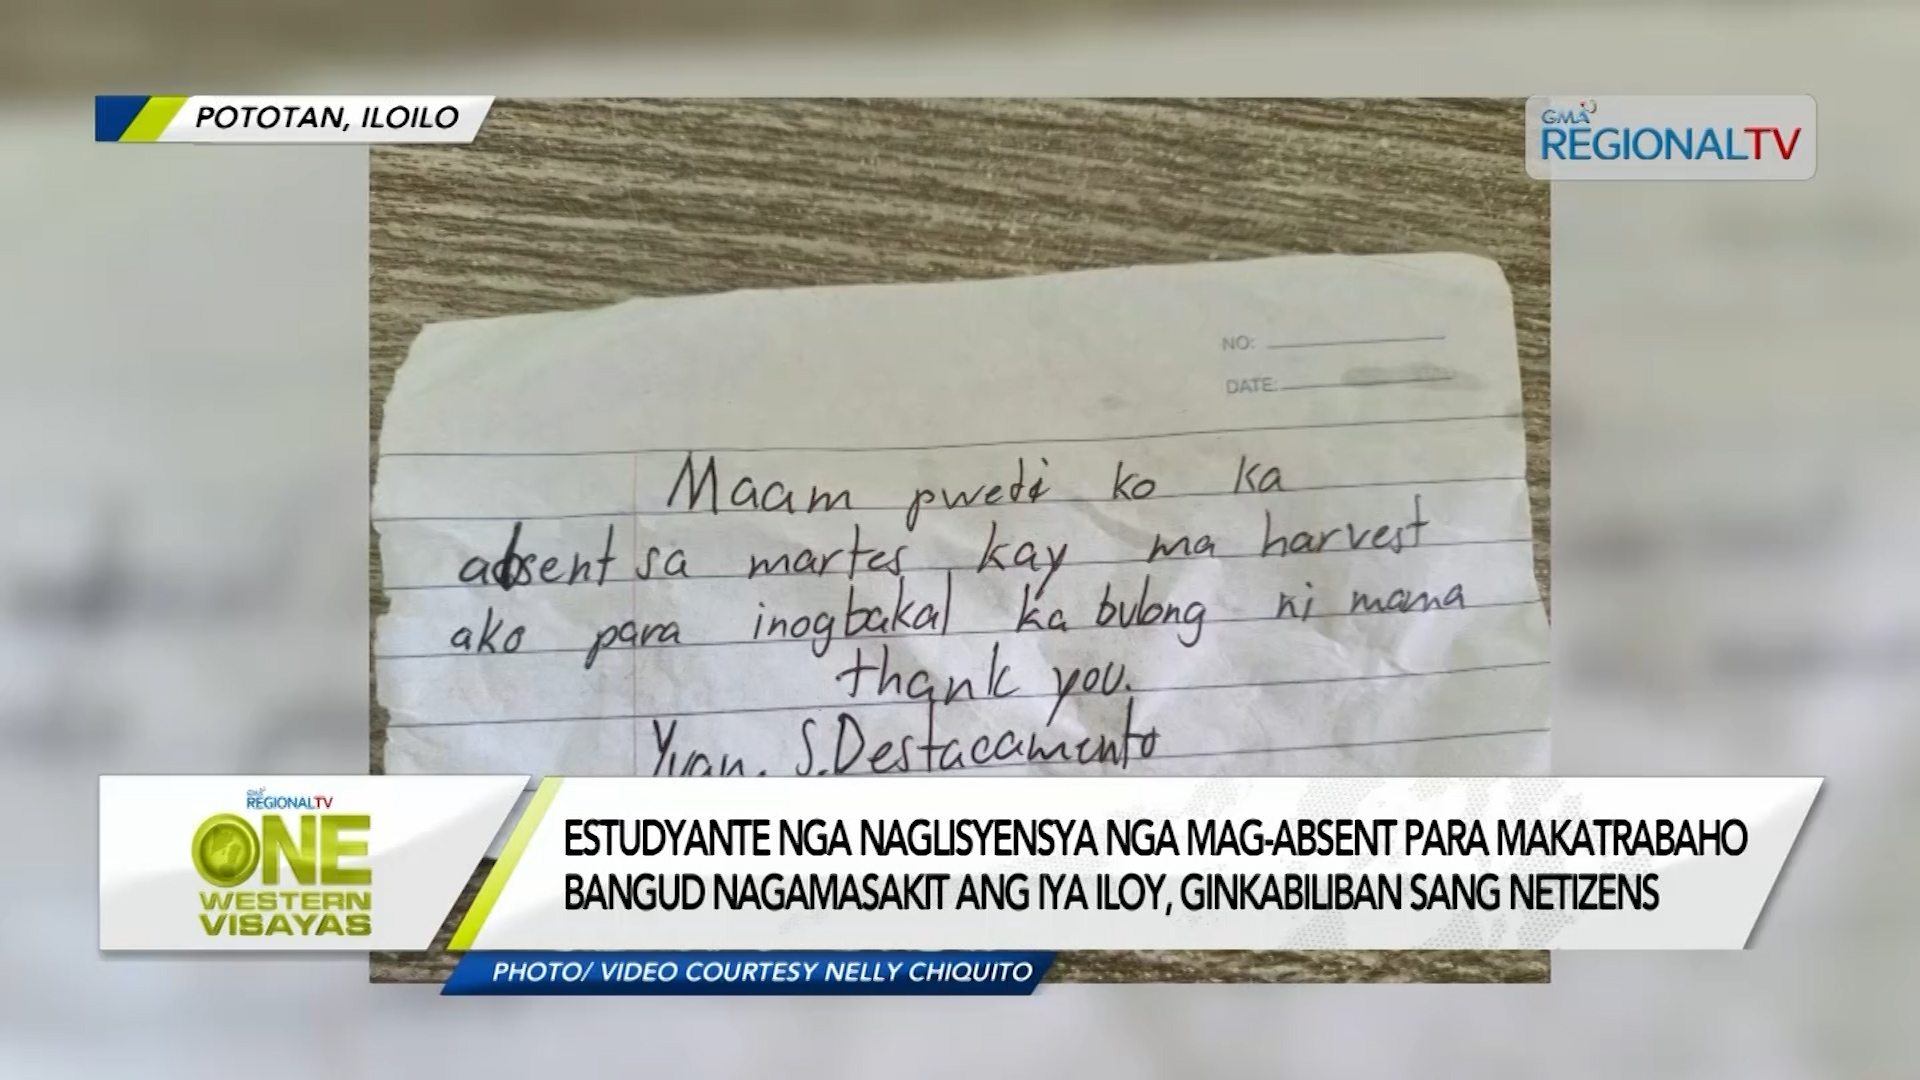 POTOTAN, ILOILO
GMA
REGIONALTV
NO:
DATE:
Maam pwedi ko ka
absent sa martes kay ma harvest
ako para inogbakal ka bulong ni mama
thank you.
Yvan. S. Destacamento
GMA
REGIONALTV
ONE
WESTERN
VISAYAS
ESTUDYANTE NGA NAGLISYENSYA NGA MAG-ABSENT PARA MAKATRABAHO
BANGUD NAGAMASAKIT ANG IYA ILOY, GINKABILIBAN SANG NETIZENS
PHOTO/ VIDEO COURTESY NELLY CHIQUITO